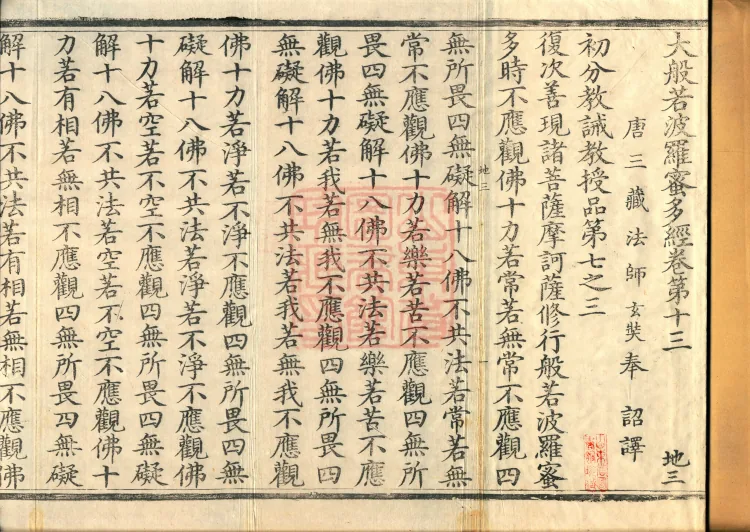 大般若波羅蜜多經卷第十三 地三
唐三藏法師玄奘奉 詔譯
初分教誡教授品第七之三
復次善現諸菩薩摩訶薩修行般若波羅蜜
多時不應觀佛十力若常若無常不應觀四
地三 一
無所畏四無礙解十八佛不共法若常若無
常不應觀佛十力若樂若苦不應觀四無所
畏四無礙解十八佛不共法若樂若苦不應
觀佛十力若我若無我不應觀四無所畏四
無礙解十八佛不共法若我若無我不應觀
佛十力若淨若不淨不應觀四無所畏四無
礙解十八佛不共法若淨若不淨不應觀佛
十力若空若不空不應觀四無所畏四無礙
解十八佛不共法若空若不空不應觀佛十
力若有相若無相不應觀四無所畏四無礙
解十八佛不共法若有相若無相不應觀佛